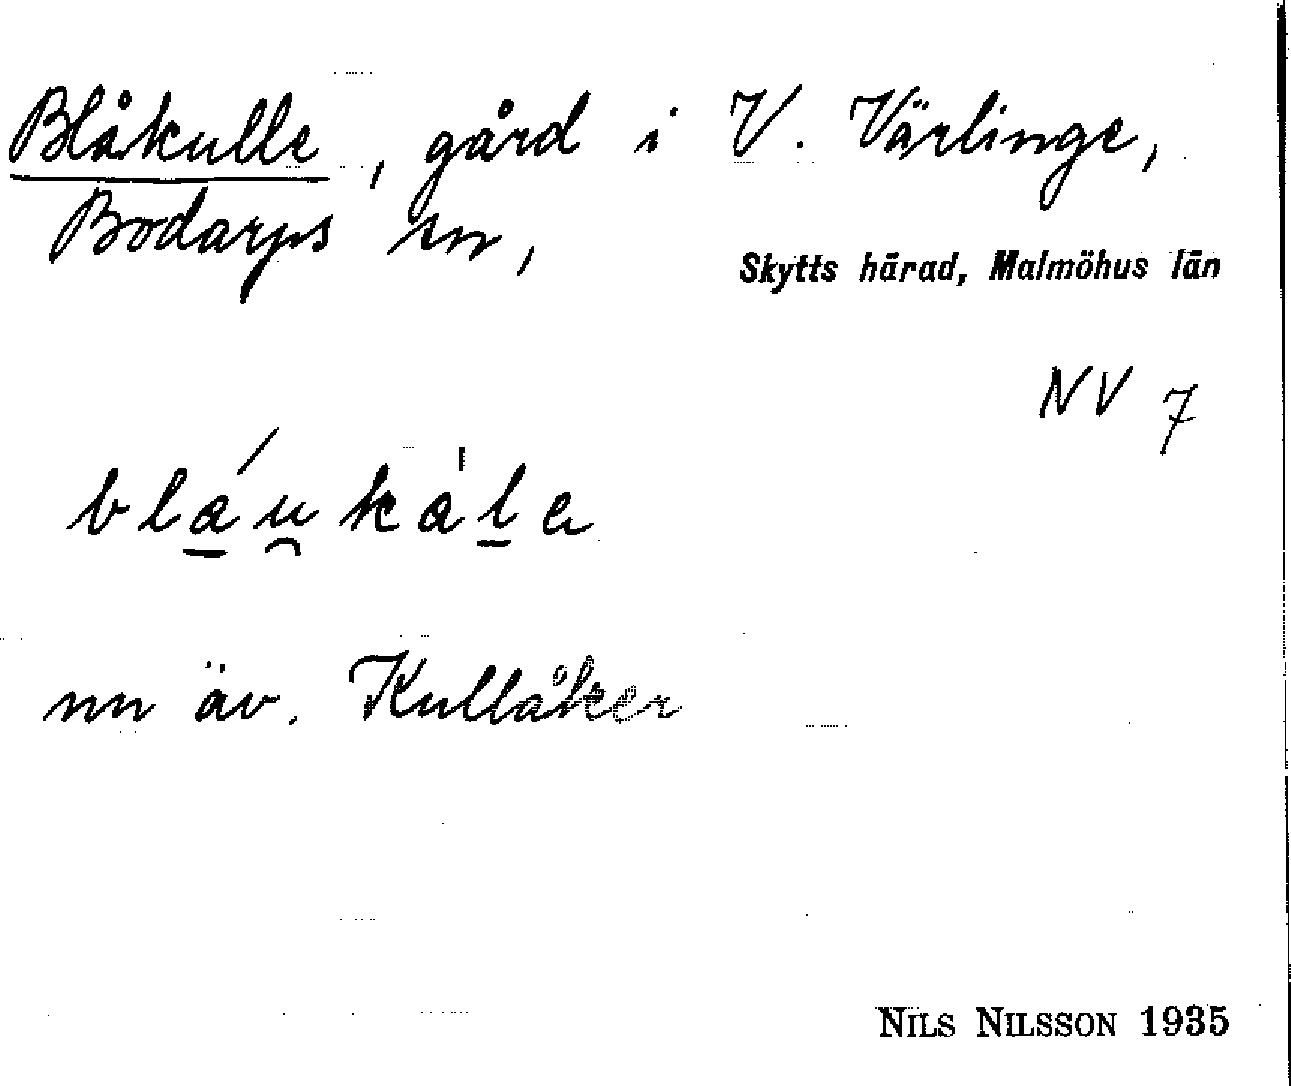 Blåkulle, gård i V. Värlinge,
Bodarps sn,
Skytts härad, Malmöhus län
NV 7
bláu̯kàḷa
nu äv. Kullåker
NILS NILSSON 1935